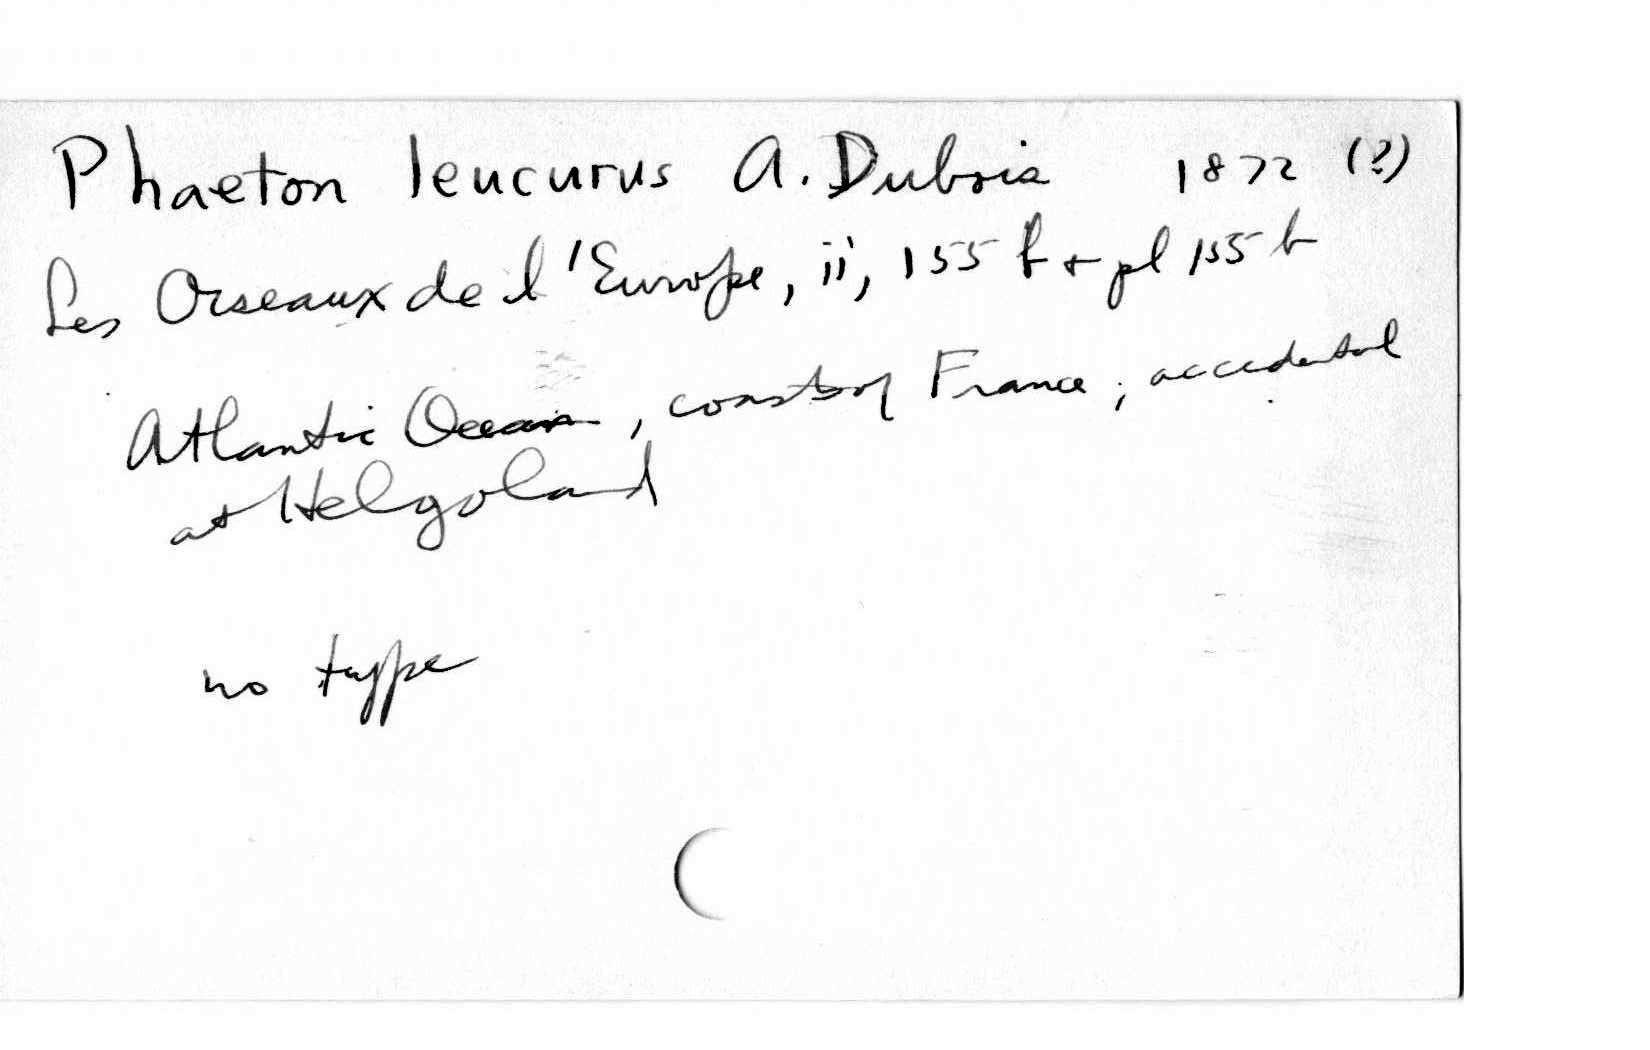 Phaeton leucurus A. Dubois 1872 (?)
Les Oiseaux de l'Europe, ii, 155 b + pl 155 b
Atlantic Ocean, coasts of France; accidental
at Helgoland
no type